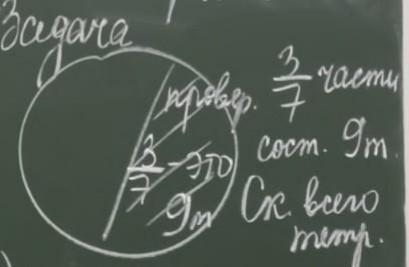 Задача
провер.
3/7 - это
9т
3/7 части
сост. 9т.
Ск. всего
тетр.